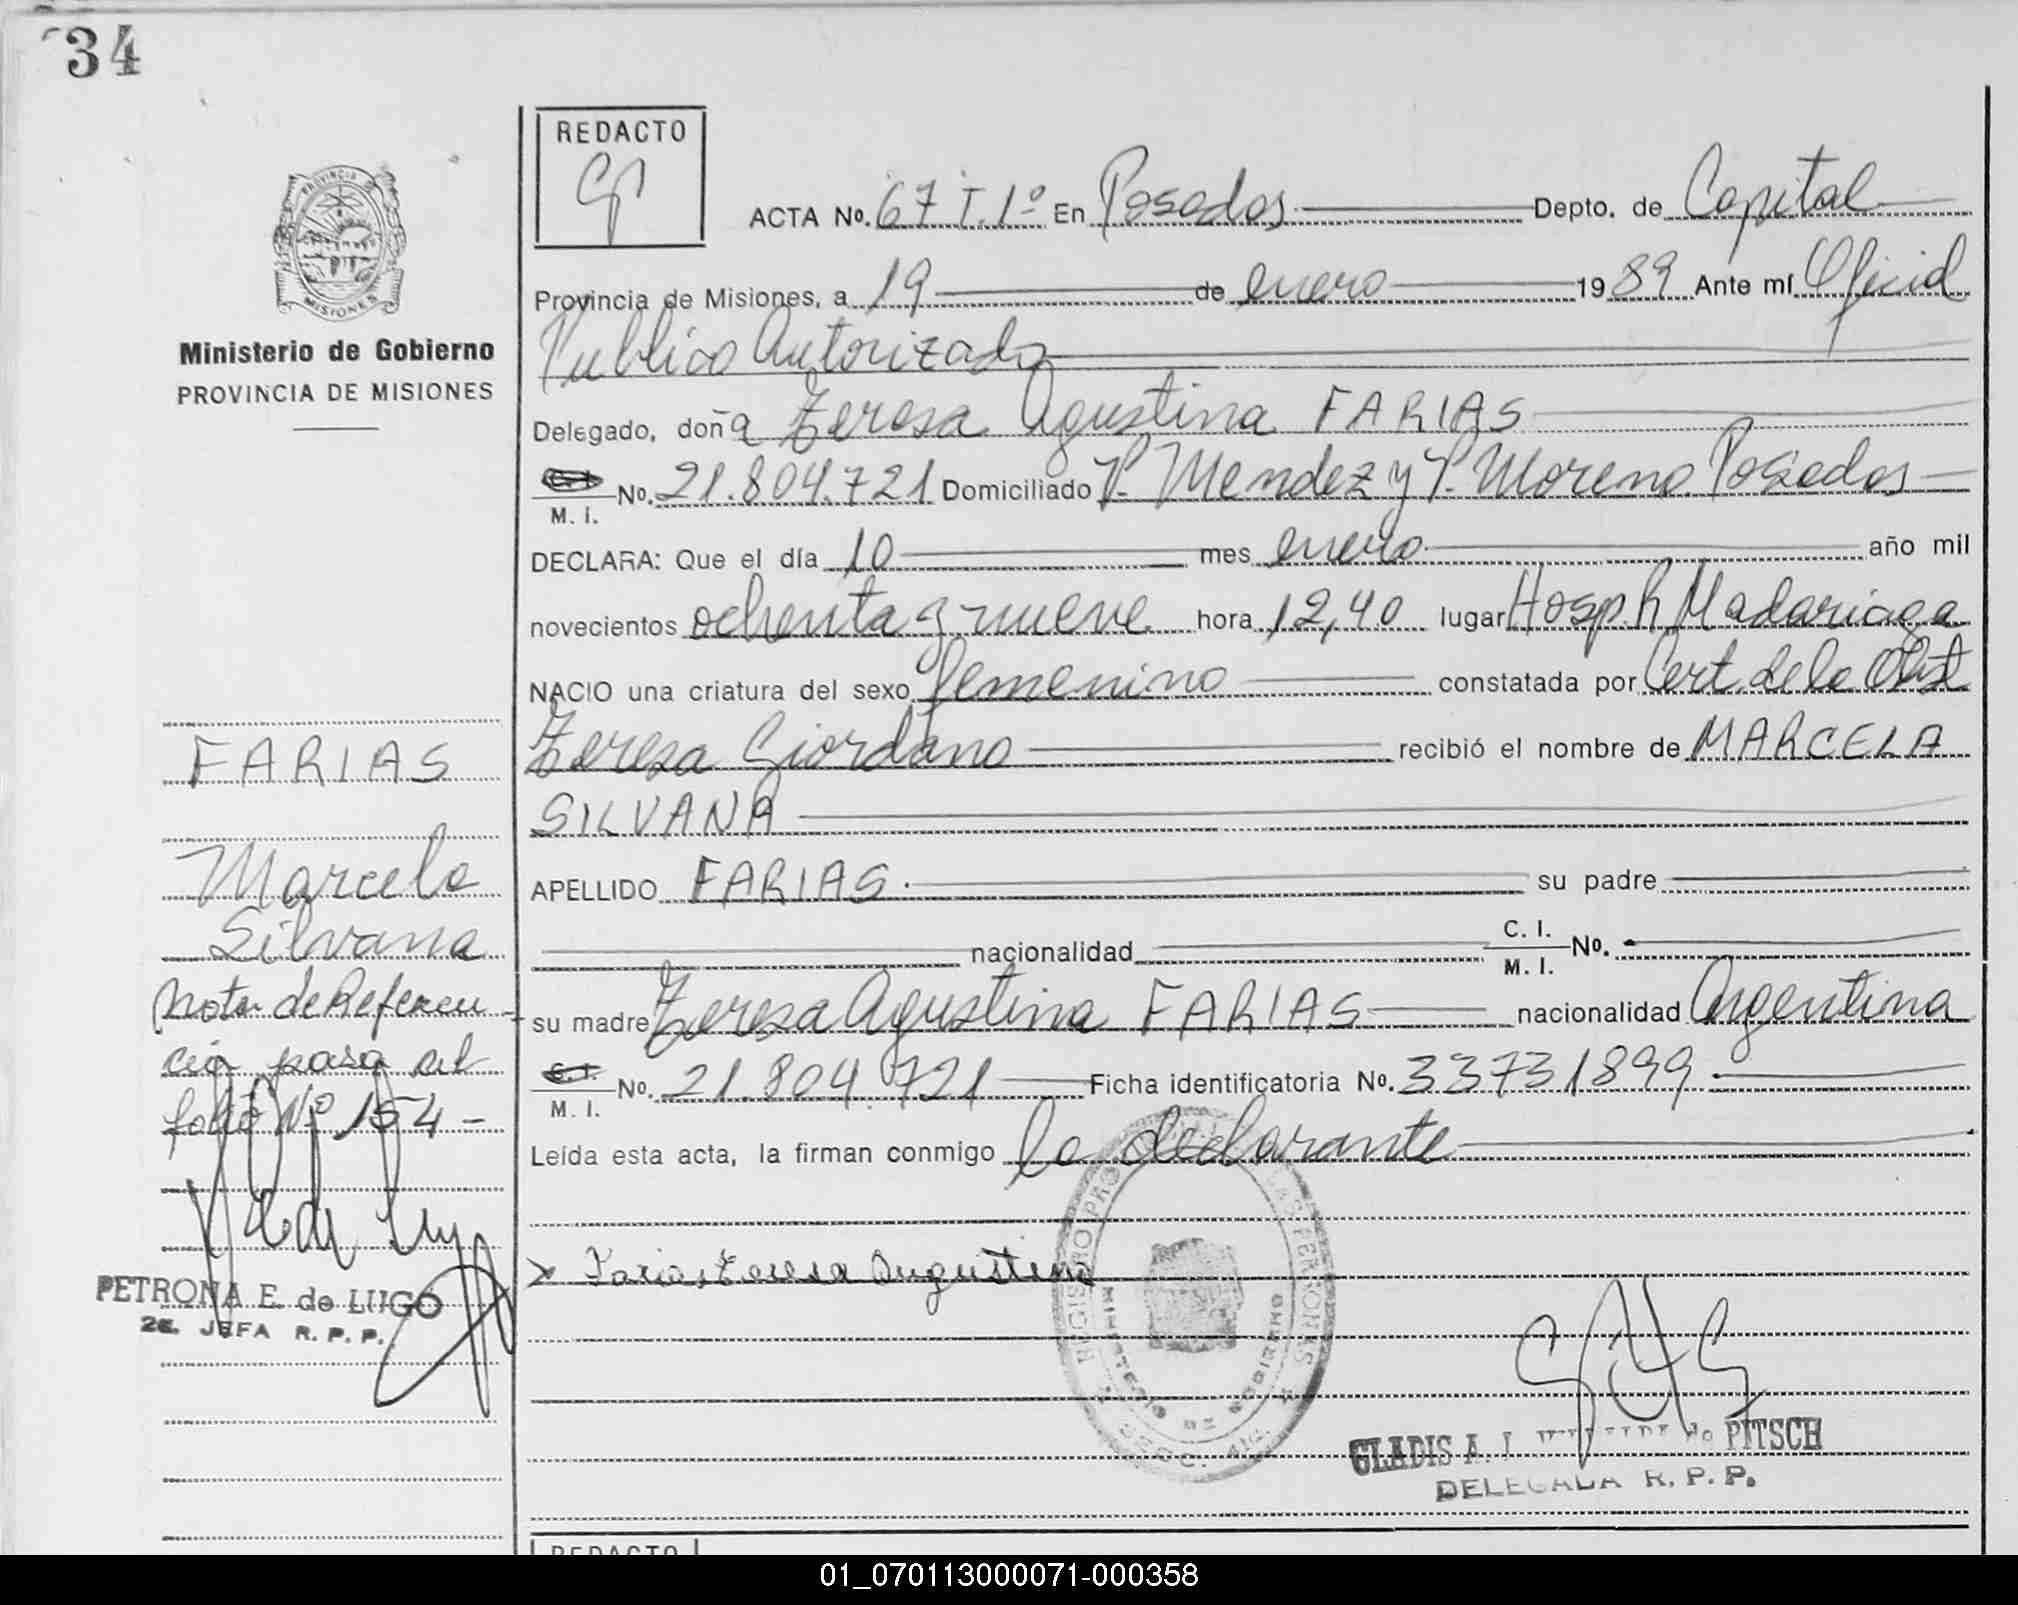 34
PROVINCIA
MISIONES
Ministerio de Gobierno
PROVINCIA DE MISIONES
FARIAS
Marcela
Silvana
Nota de Referen
cia pasa al
folio Nº 154-
PETRONA E. de LUGO
2a. JEFA R. P. P.
REDACTO
ACTA No. 67 T.1º En Posadas Depto. de Capital
Provincia de Misiones, a 19 de enero 1989 Ante mí Oficial
Publico Autorizado
Delegado, doña Teresa Agustina FARIAS
M. I. No. 21.804.721 Domiciliado P. Mendez y P. Moreno Posadas
DECLARA: Que el día 10 mes enero año mil
novecientos ochenta y nueve hora 12,40 lugar Hosp. R Madariaga
NACIO una criatura del sexo femenino constatada por Cert. de la Obst
Teresa Giordano recibió el nombre de MARCELA
SILVANA
APELLIDO FARIAS. su padre
nacionalidad C. I. M. I. No.
su madre Teresa Agustina FARIAS nacionalidad Argentina
C. I. M. I. No. 21.804.721 Ficha identificatoria No. 33731899
Leída esta acta, la firman conmigo la declarante
Farias, Teresa Augustina
REGISTRO PRO LAS PERSONAS
MINISTERIO DE GOBIERNO
SECC.
GLADIS A. de PITSCH
DELEGADA R. P. P.
REDACTO
01_070113000071-000358